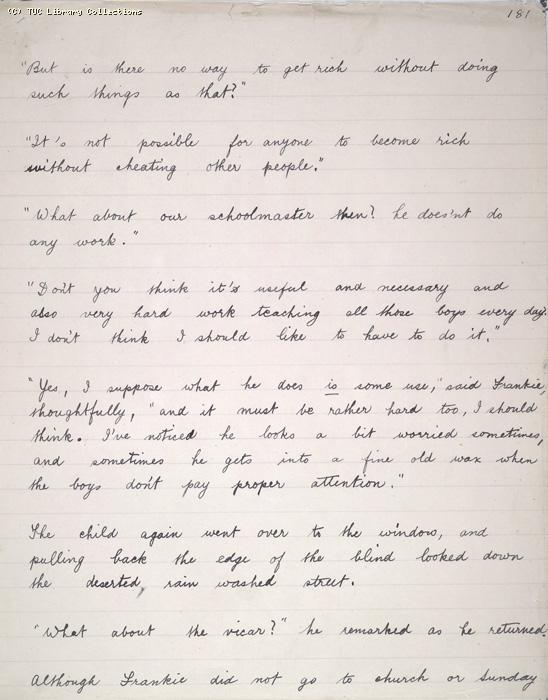 (C) TUC Library Collections
181
"But is there no way to get rich without doing
such things as that?"
"It's not possible for anyone to become rich
without cheating other people."
"What about our schoolmaster then? he does'nt do
any work."
"Don't you think it's useful and necessary and
also very hard work teaching all those boys every day?
I don't think I should like to have to do it."
"Yes, I suppose what he does is some use," said Frankie,
thoughtfully, "and it must be rather hard too, I should
think. I've noticed he looks a bit worried sometimes,
and sometimes he gets into a fine old wax when
the boys don't pay proper attention."
The child again went over to the window, and
pulling back the edge of the blind looked down
the deserted, rain washed street.
"What about the vicar?" he remarked as he returned.
Although Frankie did not go to church or Sunday